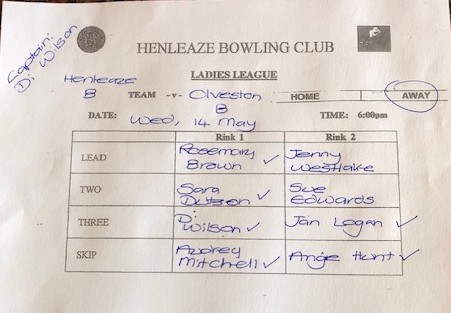 Captain:
Di Wilson
HENLEAZE BOWLING CLUB
LADIES LEAGUE
Henleaze B TEAM -v- Olveston B HOME AWAY
DATE: Wed, 14 May TIME: 6:00pm
Rink 1 Rink 2
LEAD Rosemary Brown ✓ Jenny Westlake
TWO Sara Dutson ✓ Sue Edwards
THREE Di Wilson ✓ Jan Logan ✓
SKIP Audrey Mitchell ✓ Angie Hunt ✓